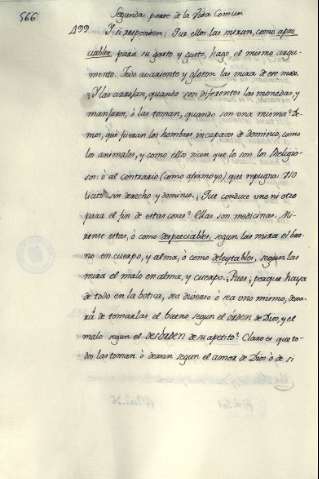 566
Segunda parte de la Vida Comun
499 Y si responden: Que ellos las miran, como apre
ciables para su gasto y gusto, hago el mismo argu-
mento. Todo avariento y gloton las mira de ese modo.
Y las aceptan, quando son diferentes las monedas y
manjares, ó las toman, quando son una misma? De-
mos, que fueran los hombres incapaces de dominio, como
los animales, y como ellos dicen que lo son los Religio-
sos: ó al contrario (como apoyo) que repugna uso
licito sin derecho y dominio. Que conduce uno ni otro
para el fin de estas cosas? Ellas son medicinas. Mi-
rense estas, ó como despreciables, segun las mira el bue-
no en cuerpo, y alma, ó como deleytables, segun las
mira el malo en alma, y cuerpo. Pues, porque haya
de todo en la botica, sea diverso ó sea uno mismo, dexa-
rá de tomarlas el bueno segun el orden de Dios, y el
malo segun el desorden de su apetito? Claro es que to-
dos las toman ó dexan segun el amor de Dios ó de si